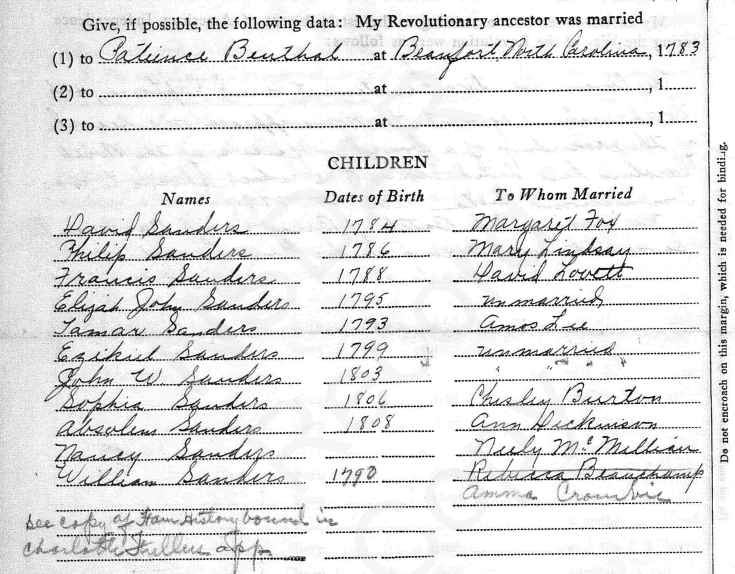 Give, if possible, the following data: My Revolutionary ancestor was married
(1) to Patience Benthal at Beaufort, North Carolina, 1783
(2) to at , 1
(3) to at , 1
CHILDREN
Names Dates of Birth To Whom Married
David Sanders 1784 Margaret Fox
Philip Sanders 1786 Mary Lindsay
Francis Sanders 1788 David Lovett
Elijah John Sanders 1795 unmarried
Tamar Sanders 1793 Amos Lee
Ezikiel Sanders 1799 unmarried
John W. Sanders 1803 " "
Sophia Sanders 1806 Chesley Burton
Absolem Sanders 1808 Ann Dickinson
Nancy Sanders Neely McMillian
William Sanders 1790 Rebecca Beauchamp
Amma
see copy of Ham History bound in
Charlotte app
Do not encroach on this margin, which is needed for binding.